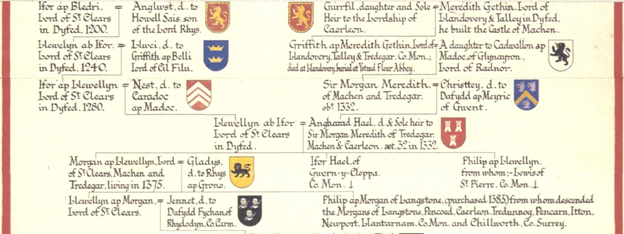 Ifor ap Bledri, = Anglwst, d. to
Lord of St Clears Howell Sais, son
in Dyfed, 1200. of the Lord Rhys.
Gwrfil, daughter and Sole = Meredith Gethin, Lord of
Heir to the Lordship of Llandovery & Talley in Dyfed,
Caerleon. he built the Castle of Machen.
Llewelyn ab Ifor, = Llwci, d. to
Lord of St Clears Griffith ap Belli
in Dyfed, 1240. Lord of Cil Filu.
Griffith ap Meredith Gethin, Lord of = A daughter to Cadwallon ap
Llandovery, Talley & Tredegar, Co. Mon.; Madoc, of Glynayron,
died at Llandovery, buried at Ystrad Flour Abbey. Lord of Radnor.
Ifor ap Llewelyn = Nest, d. to
Lord of St Clears Caradoc
in Dyfed, 1280. ap Madoc.
Sir Morgan Meredith, = Christtey, d. to
of Machen and Tredegar, Dafydd ap Meyric
obt 1332. of Gwent.
Llewellyn ab Ifor = Angharad Hael, d. & Sole heir to
Lord of St Clears Sir Morgan Meredith of Tredegar,
in Dyfed. Machen & Caerleon. aet. 32 in 1332.
Morgan ap Llewellyn, Lord = Gladys,
of St Clears, Machen, and d. to Rhys
Tredegar, living in 1375. ap Grono.
Ifor Hael, of
Gwern-y-Cleppa.
Co. Mon. ↓
Philip ap Llewellyn,
from whom:- Lewis of
St Pierre, Co. Mon. ↓
Llewellyn ap Morgan, = Jennet, d. to
Lord of St Clears. Dafydd Fychan of
Rhydodyn, Co. Carm.
Philip ap Morgan of Langstone, (purchased 1383) from whom descended
the Morgans of Langstone, Pencoed, Caerleon, Tredunnog, Pencarn, Itton,
Newport, Llantarnam, Co. Mon. and Chillworth, Co. Surrey.